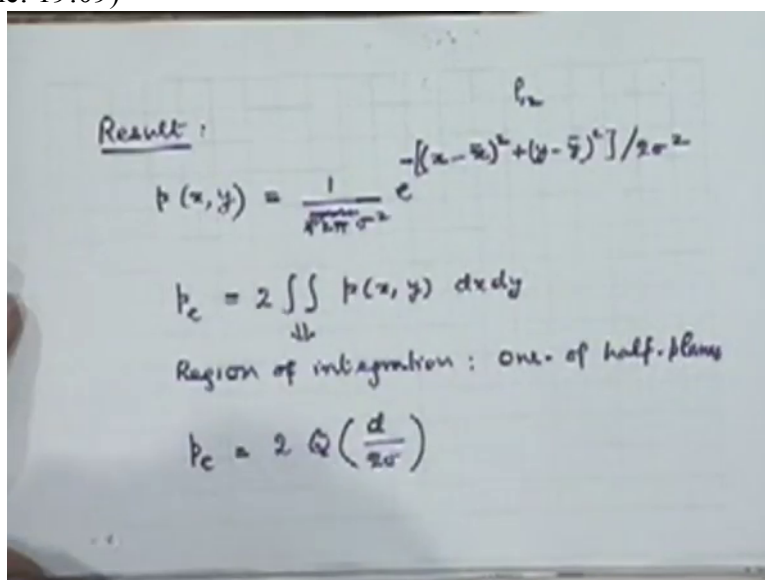 19:09)
Result :
p(x,y) = 1/(√2π σ²) e^(-[(x-x̄)²+(y-ȳ)²]/2σ²)
p_e = 2 ∬ p(x,y) dxdy
⇓
Region of integration : one of half-planes
p_e = 2 Q(d/2σ)